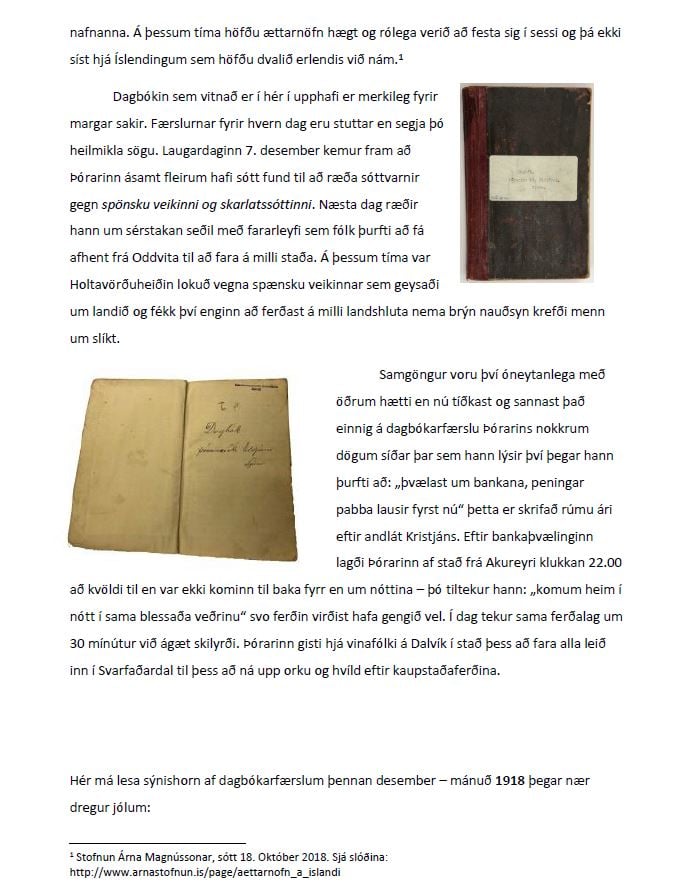 nafnanna. Á þessum tíma höfðu ættarnöfn hægt og rólega verið að festa sig í sessi og þá ekki
síst hjá Íslendingum sem höfðu dvalið erlendis við nám.¹
Dagbókin sem vitnað er í hér í upphafi er merkileg fyrir
margar sakir. Færslurnar fyrir hvern dag eru stuttar en segja þó
heilmikla sögu. Laugardaginn 7. desember kemur fram að
Þórarinn ásamt fleirum hafi sótt fund til að ræða sóttvarnir
gegn spönsku veikinni og skarlatssóttinni. Næsta dag ræðir
hann um sérstakan seðil með fararleyfi sem fólk þurfti að fá
afhent frá Oddvita til að fara á milli staða. Á þessum tíma var
Holtavörðuheiðin lokuð vegna spænsku veikinnar sem geysaði
um landið og fékk því enginn að ferðast á milli landshluta nema brýn nauðsyn krefði menn
um slíkt.
Samgöngur voru því óneytanlega með
öðrum hætti en nú tíðkast og sannast það
einnig á dagbókarfærslu Þórarins nokkrum
dögum síðar þar sem hann lýsir því þegar hann
þurfti að: „þvælast um bankana, peningar
pabba lausir fyrst nú“ þetta er skrifað rúmu ári
eftir andlát Kristjáns. Eftir bankaþvælinginn
lagði Þórarinn af stað frá Akureyri klukkan 22.00
að kvöldi til en var ekki kominn til baka fyrr en um nóttina – þó tiltekur hann: „komum heim í
nótt í sama blessaða veðrinu“ svo ferðin virðist hafa gengið vel. Í dag tekur sama ferðalag um
30 mínútur við ágæt skilyrði. Þórarinn gisti hjá vinafólki á Dalvík í stað þess að fara alla leið
inn í Svarfaðardal til þess að ná upp orku og hvíld eftir kaupstaðaferðina.
Dagbók
Hér má lesa sýnishorn af dagbókarfærslum þennan desember – mánuð 1918 þegar nær
dregur jólum:
¹ Stofnun Árna Magnússonar, sótt 18. Október 2018. Sjá slóðina:
http://www.arnastofnun.is/page/aettarnofn_a_islandi